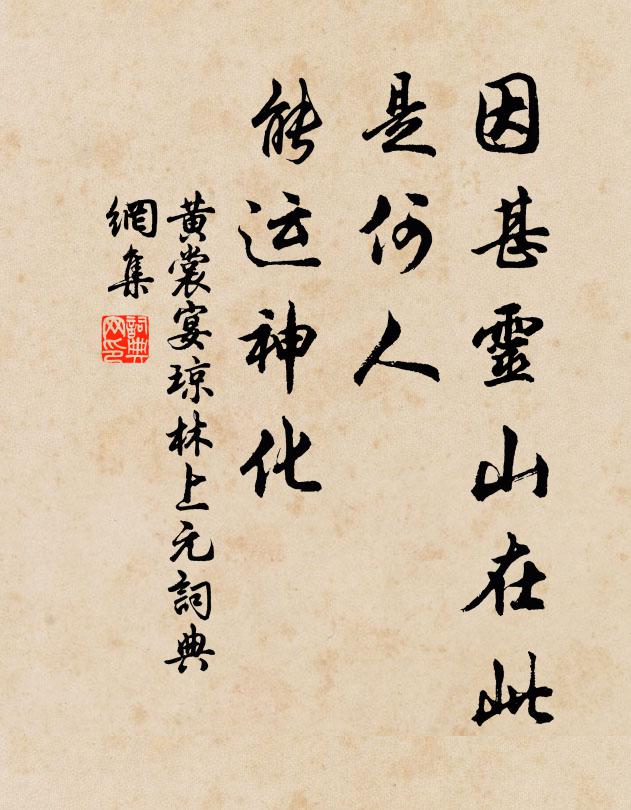 因甚靈山在此
是何人
能运神化
黄裳宴琼林上元詞典
網集
詞典
网印